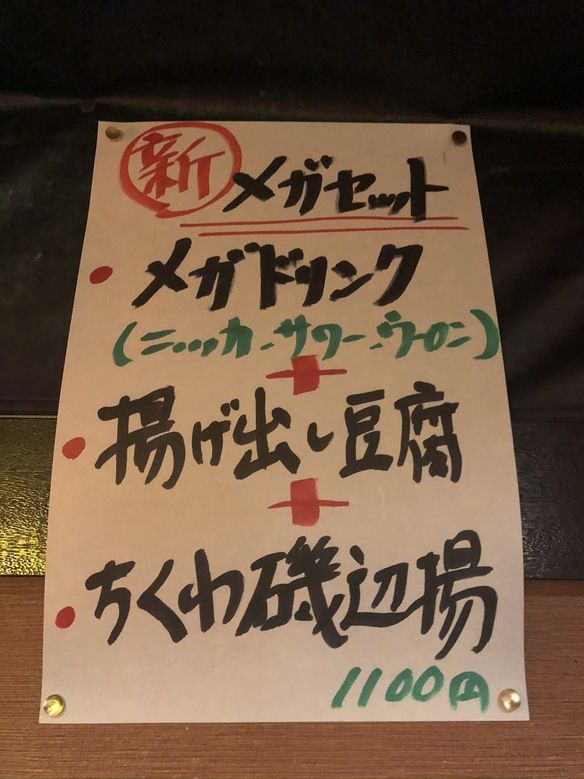 新 メガセット
・メガドリンク
(ニッカ、サワー、ウーロン)
+
・揚げ出し豆腐
+
・ちくわ磯辺揚
1100円